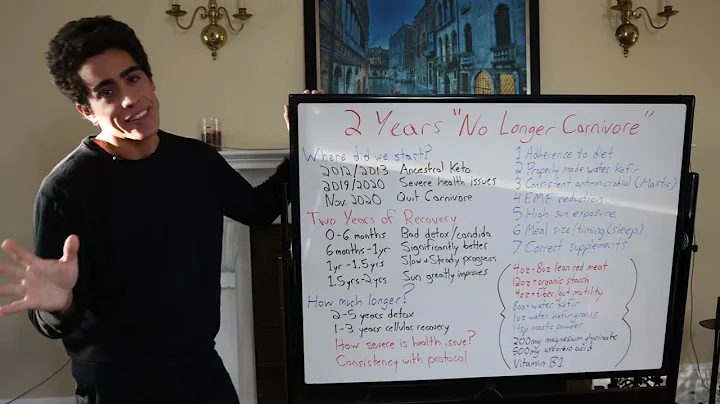 2 Years "No Longer Carnivore"
Where did we start?
2012/2013 Ancestral Keto
2019/2020 Severe health issues
Nov. 2020 Quit Carnivore
Two Years of Recovery
0-6 months Bad detox/candida
6 months-1yr Significantly better
1yr-1.5yrs Slow & Steady progress
1.5yrs-2yrs Sun greatly improves
How much longer?
2-5 years detox
1-3 years cellular recovery
How severe is health issue?
Consistency with protocol
1 Adherence to diet
2 Properly made water kefir
3 Consistent anti-microbial (Mastic)
4 EMF reduction
5 High sun exposure
6 Meal size/timing (sleep)
7 Correct supplements
4oz-8oz lean red meat
12oz+ organic starch
4oz+ fiber/gut motility
8oz+ water kefir
1oz water kefir grains
1 tsp mastic powder
200mg magnesium glycinate
500mg ascorbic acid
Vitamin B1